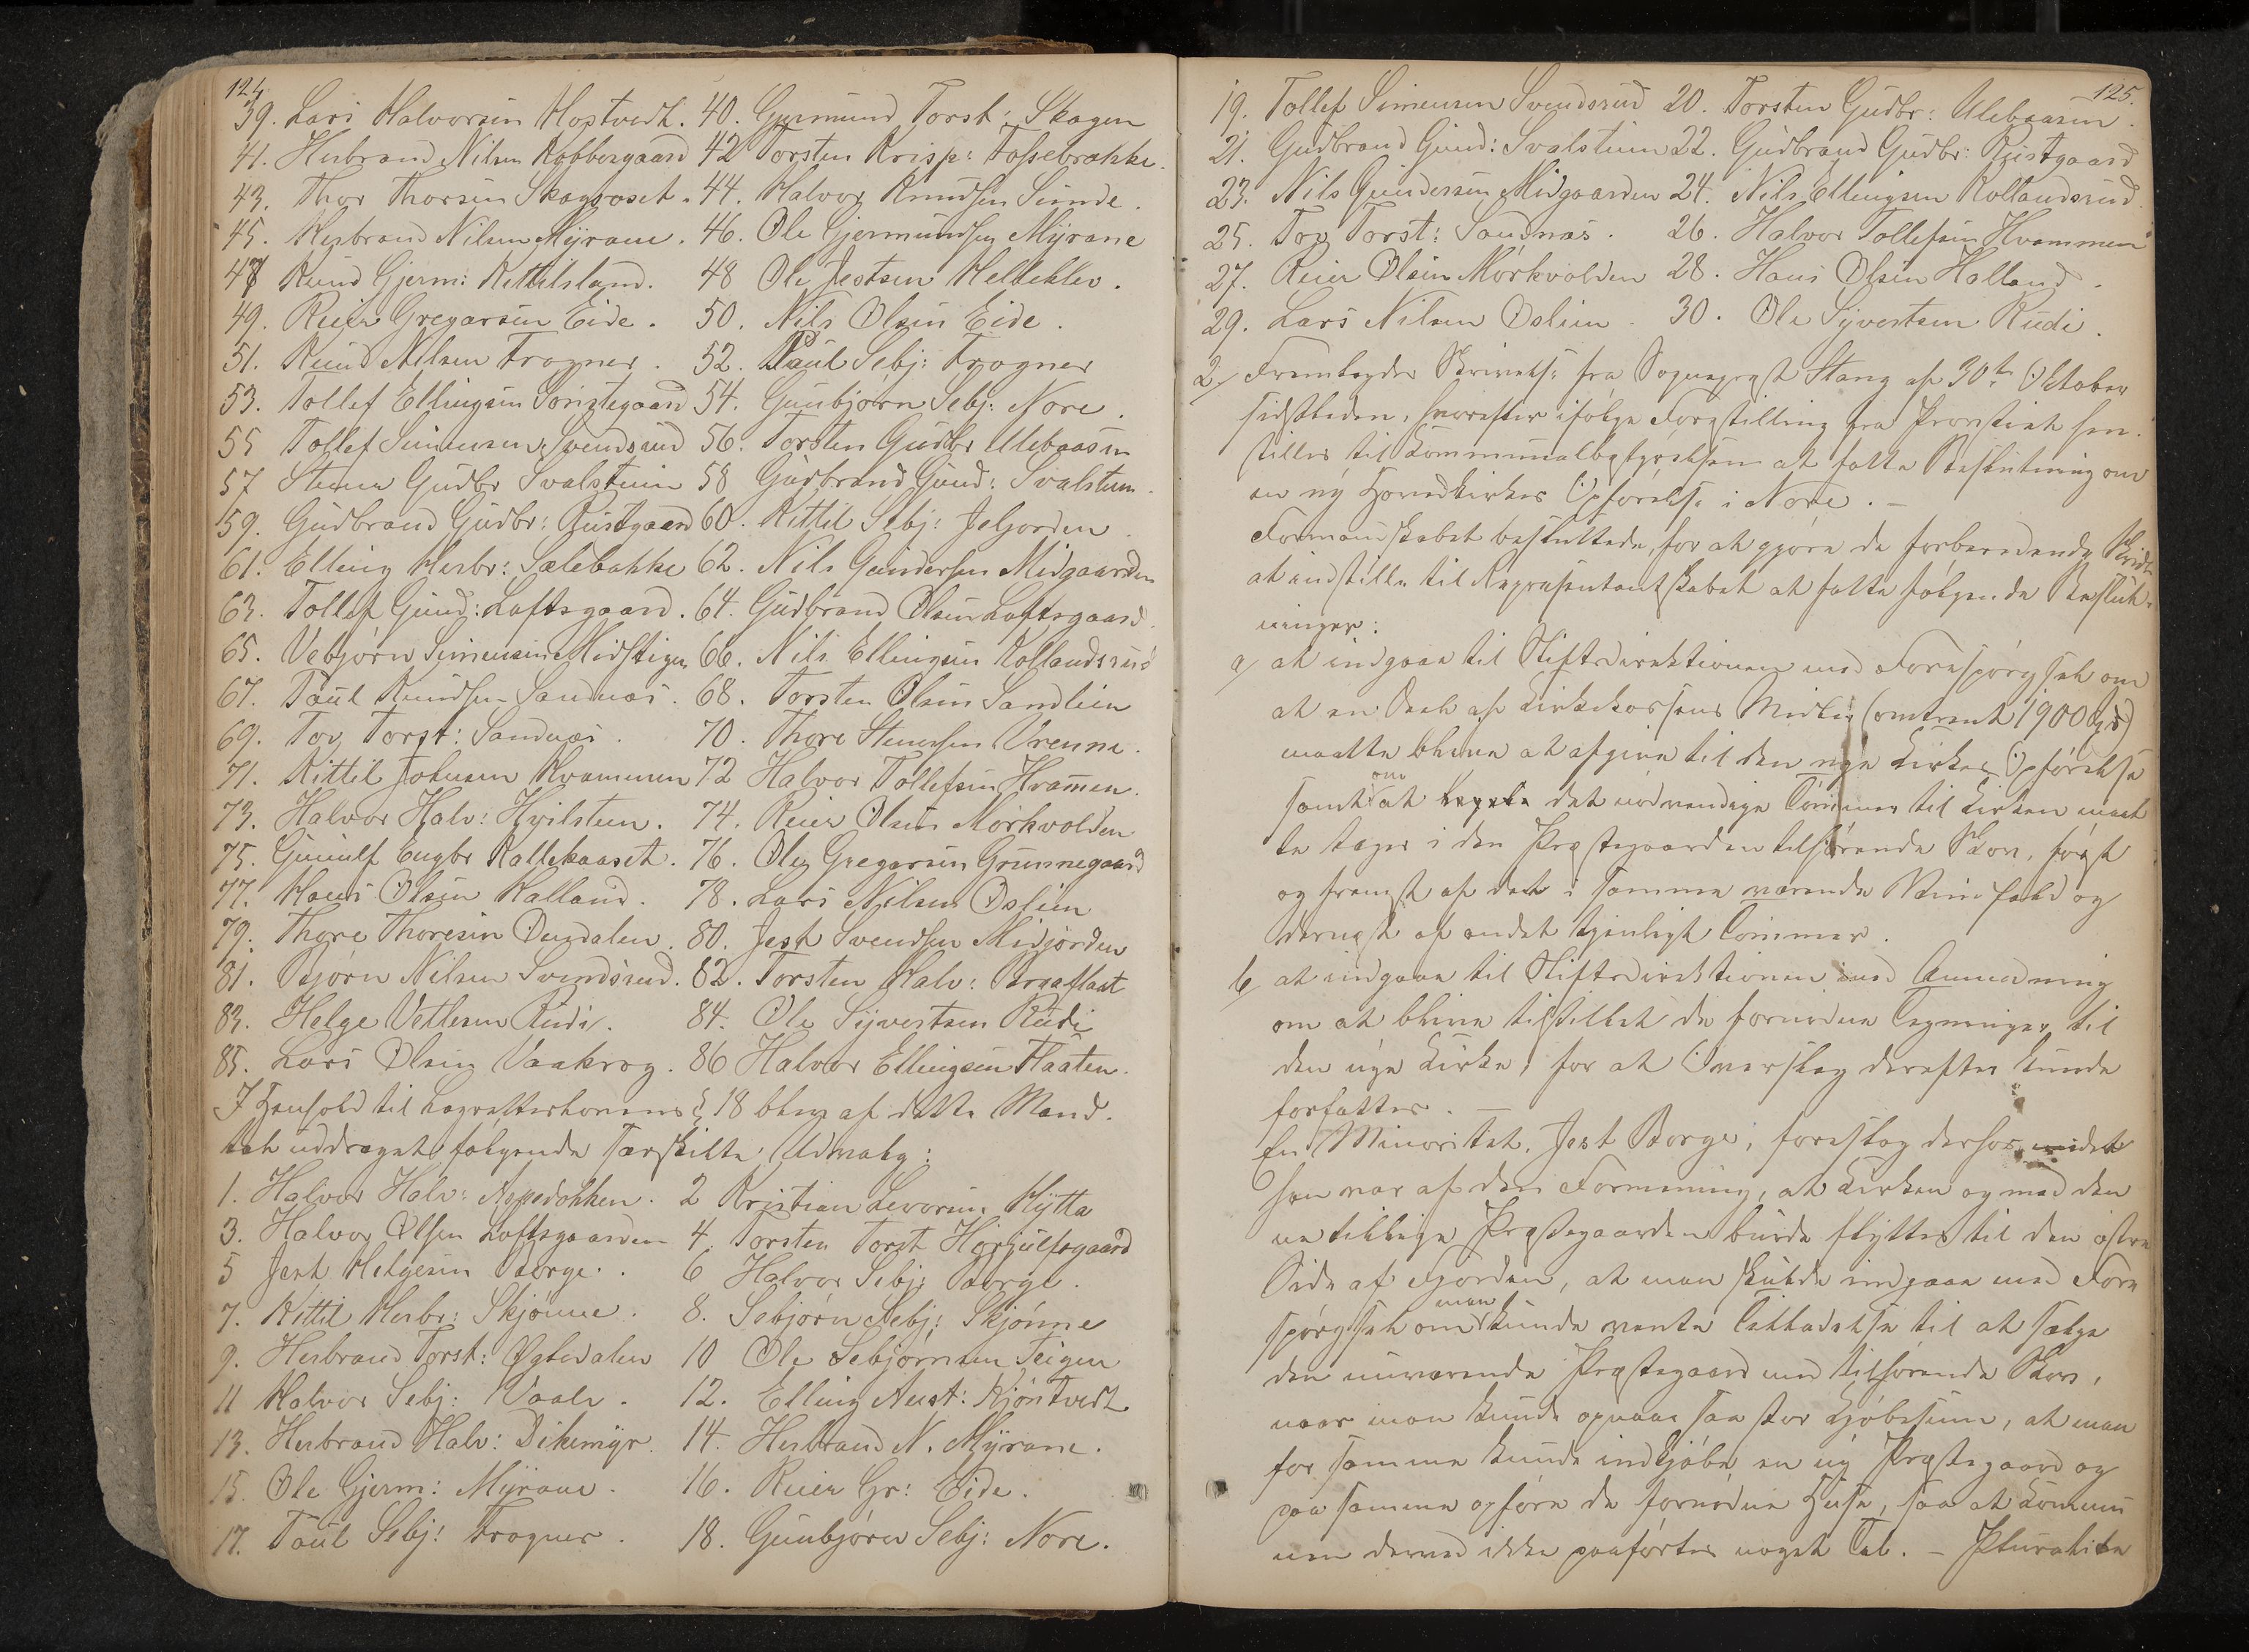 124.
39. Lars Halvorsen Hostvedt. 40. Gjermund Torst: Skagen
41. Herbrand Nilsen Kobbergaard 42 Torsten Krisp: Fossebrække.
43. Thor Thorsen Skagsoset. 44. Halvor Knudsen Sunde.
45. Herbrand Nilsen Myrane. 46. Ole Gjermundsen Myrane
47 Knud Gjerm: Kittilsland. 48 Ole Jestsen Helleklev.
49. Reier Gregarsen Eide. 50. Nils Olsen Eide.
51. Knud Nilsen Frogner. 52. Paul Sebj: Frogner
53. Tollef Ellingsen Soristegaard 54. Gunbjørn Sebj: Nore.
55 Tollef Simensen Svendsrud 56. Torsten Gudbr Ulebaasen
57 Stener Gudbr Svalsteim 58 Gudbrand Gund: Svalsteim.
59. Gudbrand Gudbr: Rustgaard 60. Kittil Sebj: Jeljorden.
61. Elling Herbr: Sælebakke 62. Nils Gundersen Midgaarden
63. Tollef Gund: Loftsgaard. 64. Gudbrand Olsen Loftsgaard.
65. Vebjørn Simensen Midstigen 66. Nils Ellingsen Rollandsrud
67. Paul Knudsen Sandnæs. 68. Torsten Olsen Sandlien
69. Tov Torst: Sandnæs. 70. Thore Stenersen Vrenne.
71. Kittil Johnsen Kvammen 72 Halvor Tollefsen Hvammen.
73. Halvor Halv: Hvilsteen. 74. Reier Olsen Mørkvolden
75. Gunulf Engbr Kallekaaset. 76. Ole Gregarsen Grunnegaard
77. Hans Olsen Halland. 78. Lars Nilsen Oslien
79. Thore Thoresen Dusdalen. 80. Jest Svendsen Midjorden
81. Bjørn Nilsen Svendsrud. 82. Torsten Halv: Borgaflaat
83. Helge Vetlesen Rudi. 84. Ole Syvertsen Rudi
85. Lars Olsen Vaakrog. 86 Halvor Ellingsen Flaaten.
I Henhold til Lagretterlovens § 18 blev af dette Mand-
tal uddraget følgende særskilte Udvalg:
1. Halvor Halv: Aspedokken. 2 Kristian Levorsen Hytta
3. Halvor Olsen Loftsgaarden 4. Torsten Torst Herjulfsgaard
5 Jest Helgesen Borge. 6 Halvor Sebj: Borge.
7. Kittil Herbr: Skjønne. 8. Sebjørn Sebj: Skjønne
9. Herbrand Torst: Øgtedalen 10 Ole Sebjørnsen Teigen
11 Halvor Sebj: Vaale. 12. Elling Aust: Kjøntvedt
13. Herbrand Halv: Dikemyr. 14. Herbrand N. Myrane.
15. Ole Gjerm: Myrane. 16. Reier Gr: Eide.
17. Paul Sebj: Frogner. 18. Gunbjørn Sebj: Nore.
125.
19. Tollef Simensen Svendsrud 20. Torsten Gudbr: Ulebaasen.
21. Gudbrand Gund: Svalsteim 22. Gudbrand Gudbr: Rustgaard
23. Nils Gundersen Midgaarden 24. Nils Ellingsen Rollandsrud.
25. Tov Torst: Sandnæs. 26. Halvor Tollefsen Hvammen
27. Reier Olsen Mørkvolden 28. Hans Olsen Halland.
29. Lars Nilsen Oslien. 30. Ole Syvertsen Rudi.
2/ Fremlagdes Skrivelse fra Sognepræst Stang af 30te Oktober
sidstleden, hvorefter ifølge Forestilling fra Provstiet hen-
stilles til Kommunalbestyrelsen at fatte Beslutning om
en ny Hovedkirkes Opførelse i Nore. —
Formandskabet besluttede, for at gjøre de forberedende Skridt,
at indstille til Repræsentantskabet at fatte følgende Beslut-
ninger:
a/ at indgaa til Stiftsdirektionen med Forespørgsel om
at en Deel af Kirkekassens Midler (omtrent 1900 Kr)
maatte blive at afgive til den nye Kirkes Opførelse
samt om at det nødvendige Tømmer til Kirken maat
te tages i den Præstegaarden tilhørende Skov, først
og fremst af det i samme værende Vindfald og
dernæst af andet tjenligt Tømmer.
b/ at indgaa til Stiftsdirektionen med Anmodning
om at blive tilstillet de fornødne Tegninger til
den nye Kirke, for at Overslag derefter kunde
forfattes. —
En Minoritet, Jest Borge, foreslog derhos
han var af den Formening, at Kirken og med den
ne tillige Præstegaarden burde flyttes til den østre
Side af Fjorden, at man skulde indgaa med Fore
spørgsel om man kunde vente Tilladelse til at sælge
den nuværende Præstegaard med tilhørende Skov,
naar man kunde opnaa saa stor Kjøbesum, at man
for samme kunde indkjøbe en ny Præstegaard og
paa samme opføre de fornødne Huse, saa at Kommu
nen derved ikke paaførtes noget Tab. — Pluralite